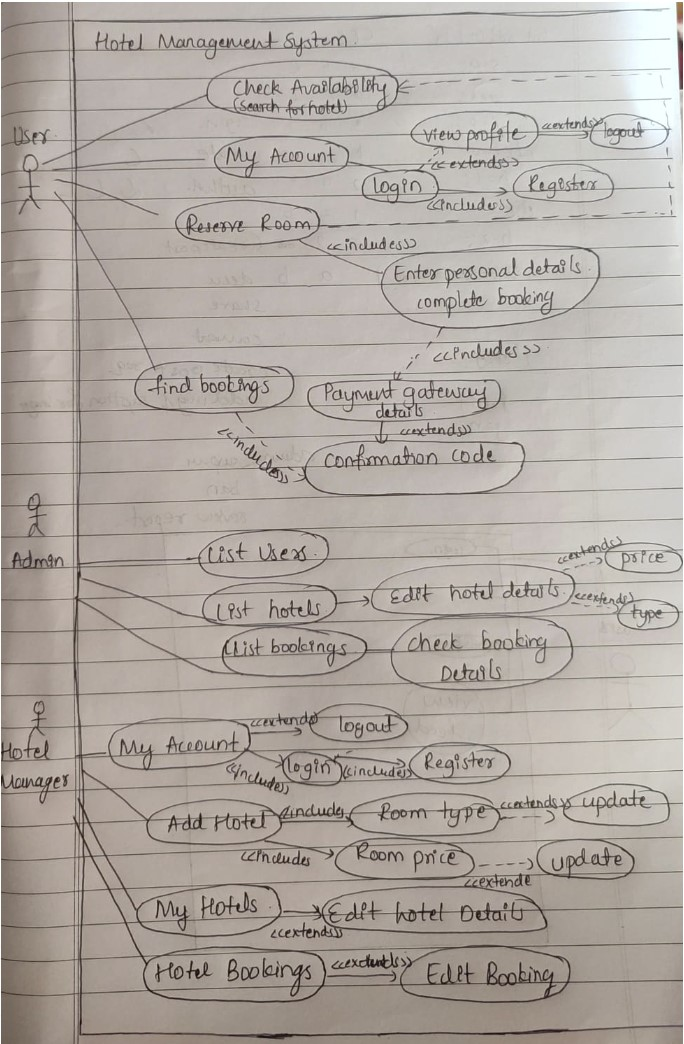 Hotel Management System
Check Availability
(Search for hotel)
User
view profile
<<extends>>
logout
My Account
<<extends>>
login
Register
<<includes>>
Reserve Room
<<includes>>
Enter personal details
complete booking
<<includes>>
find bookings
Payment gateway
details
<<extends>>
<<includes>>
Confirmation code
Admin
List Users
<<extends>>
price
List hotels
Edit hotel details
<<extends>>
type
List bookings
check booking
Details
Hotel
Manager
My Account
<<extends>>
logout
<<includes>>
login
<<includes>>
Register
Add Hotel
<<includes
Room type
<<extends>>
update
<<includes
Room price
update
<<extende
My Hotels
Edit hotel Details
<<extends>>
Hotel Bookings
<<extends>>
Edit Booking